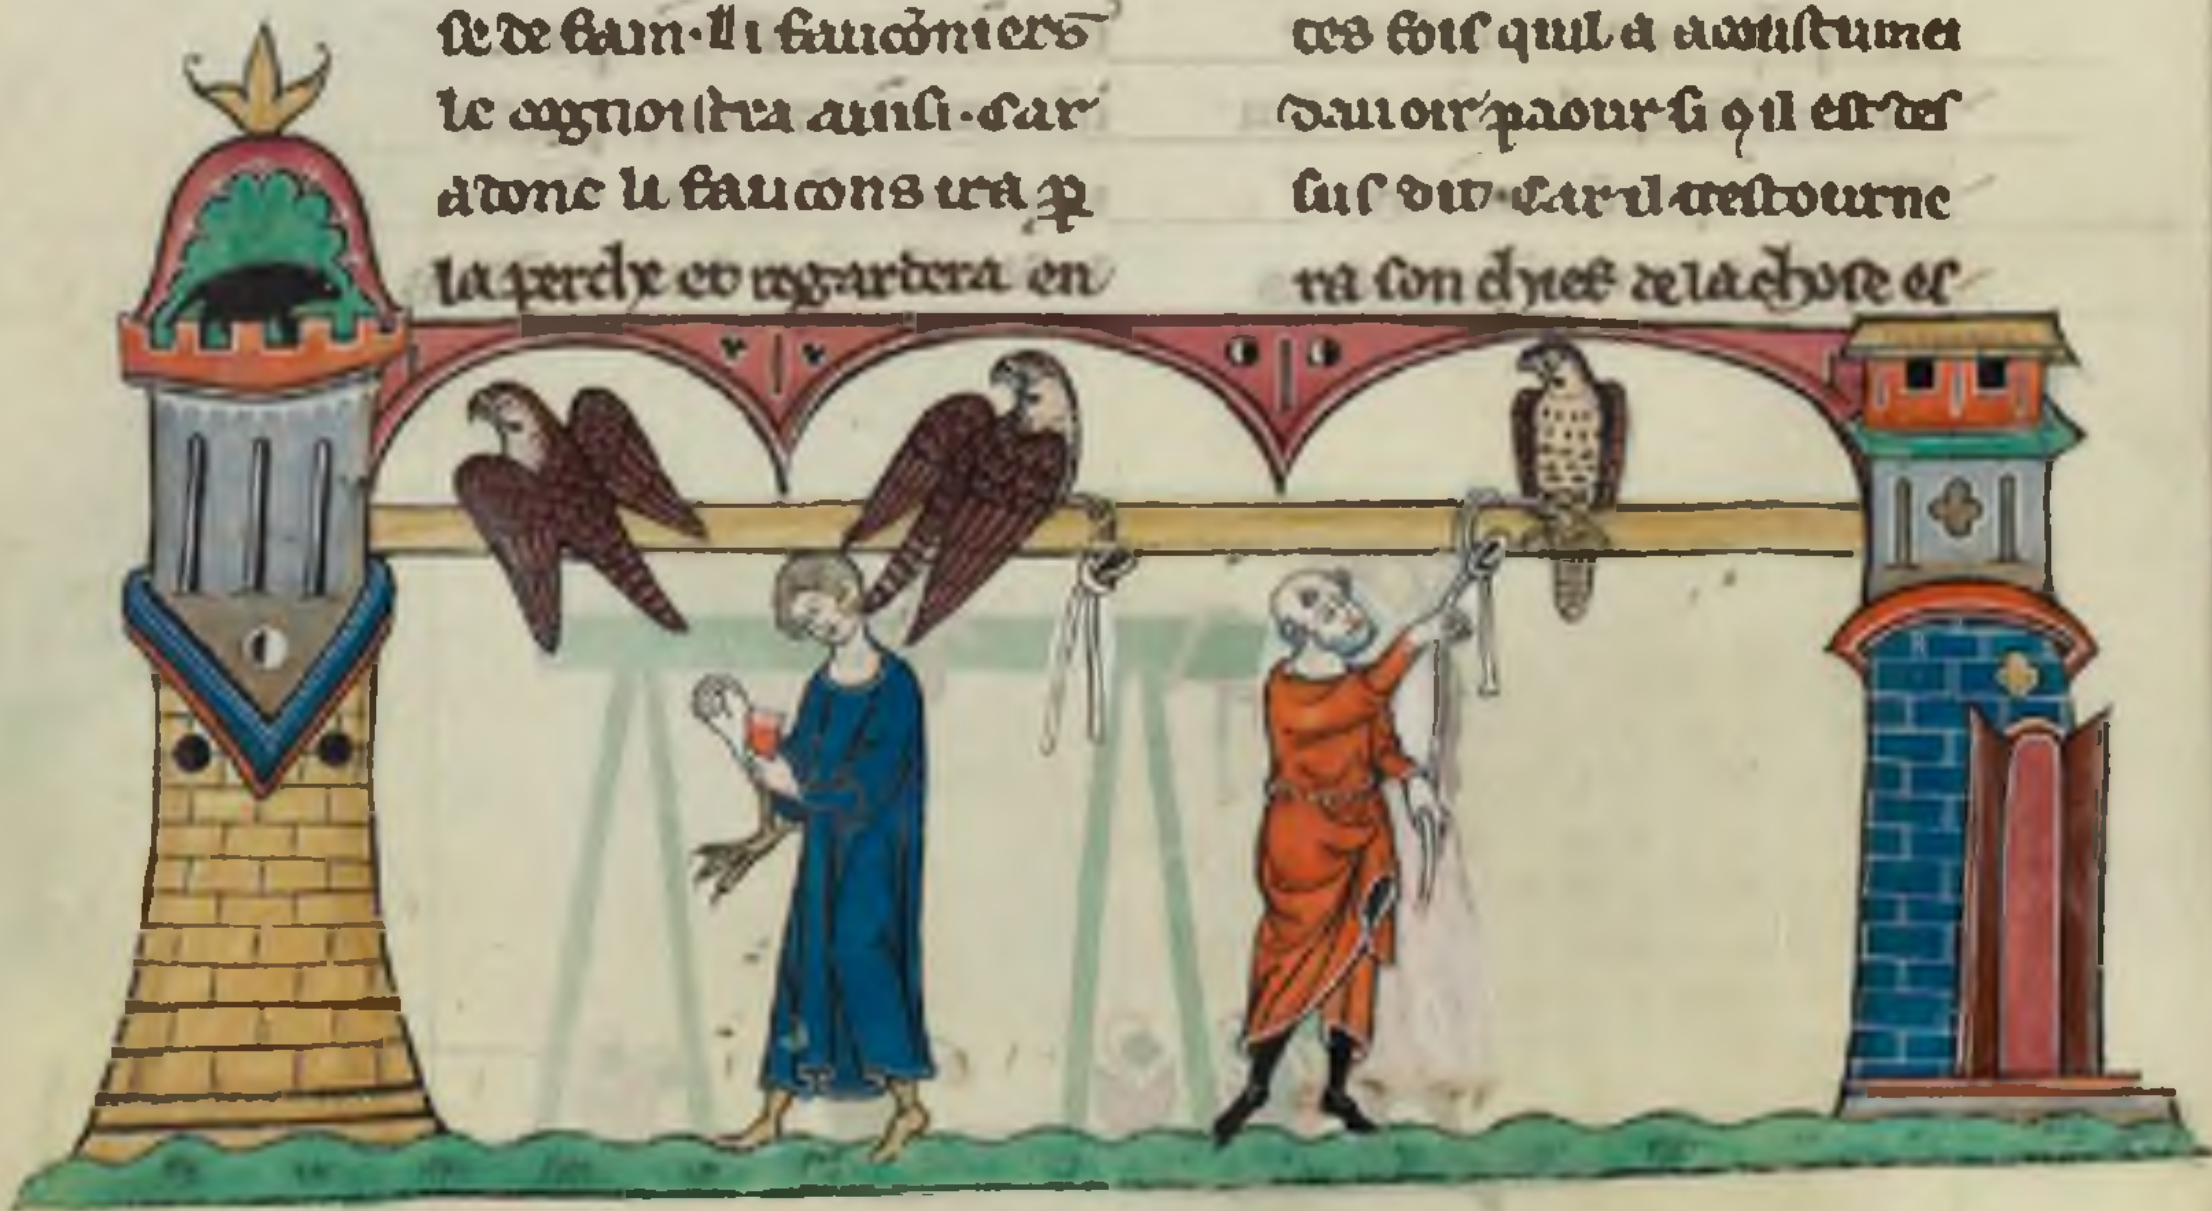 se de fain. Et li fauconiers
le cognoistra ainsi. Car
adonc li faucons ira p
la perche et regardera en
tes fois quil a acoustume
dauoir paour si q il est des
sus dit. Car il trestourne
ra son chief de la chose es